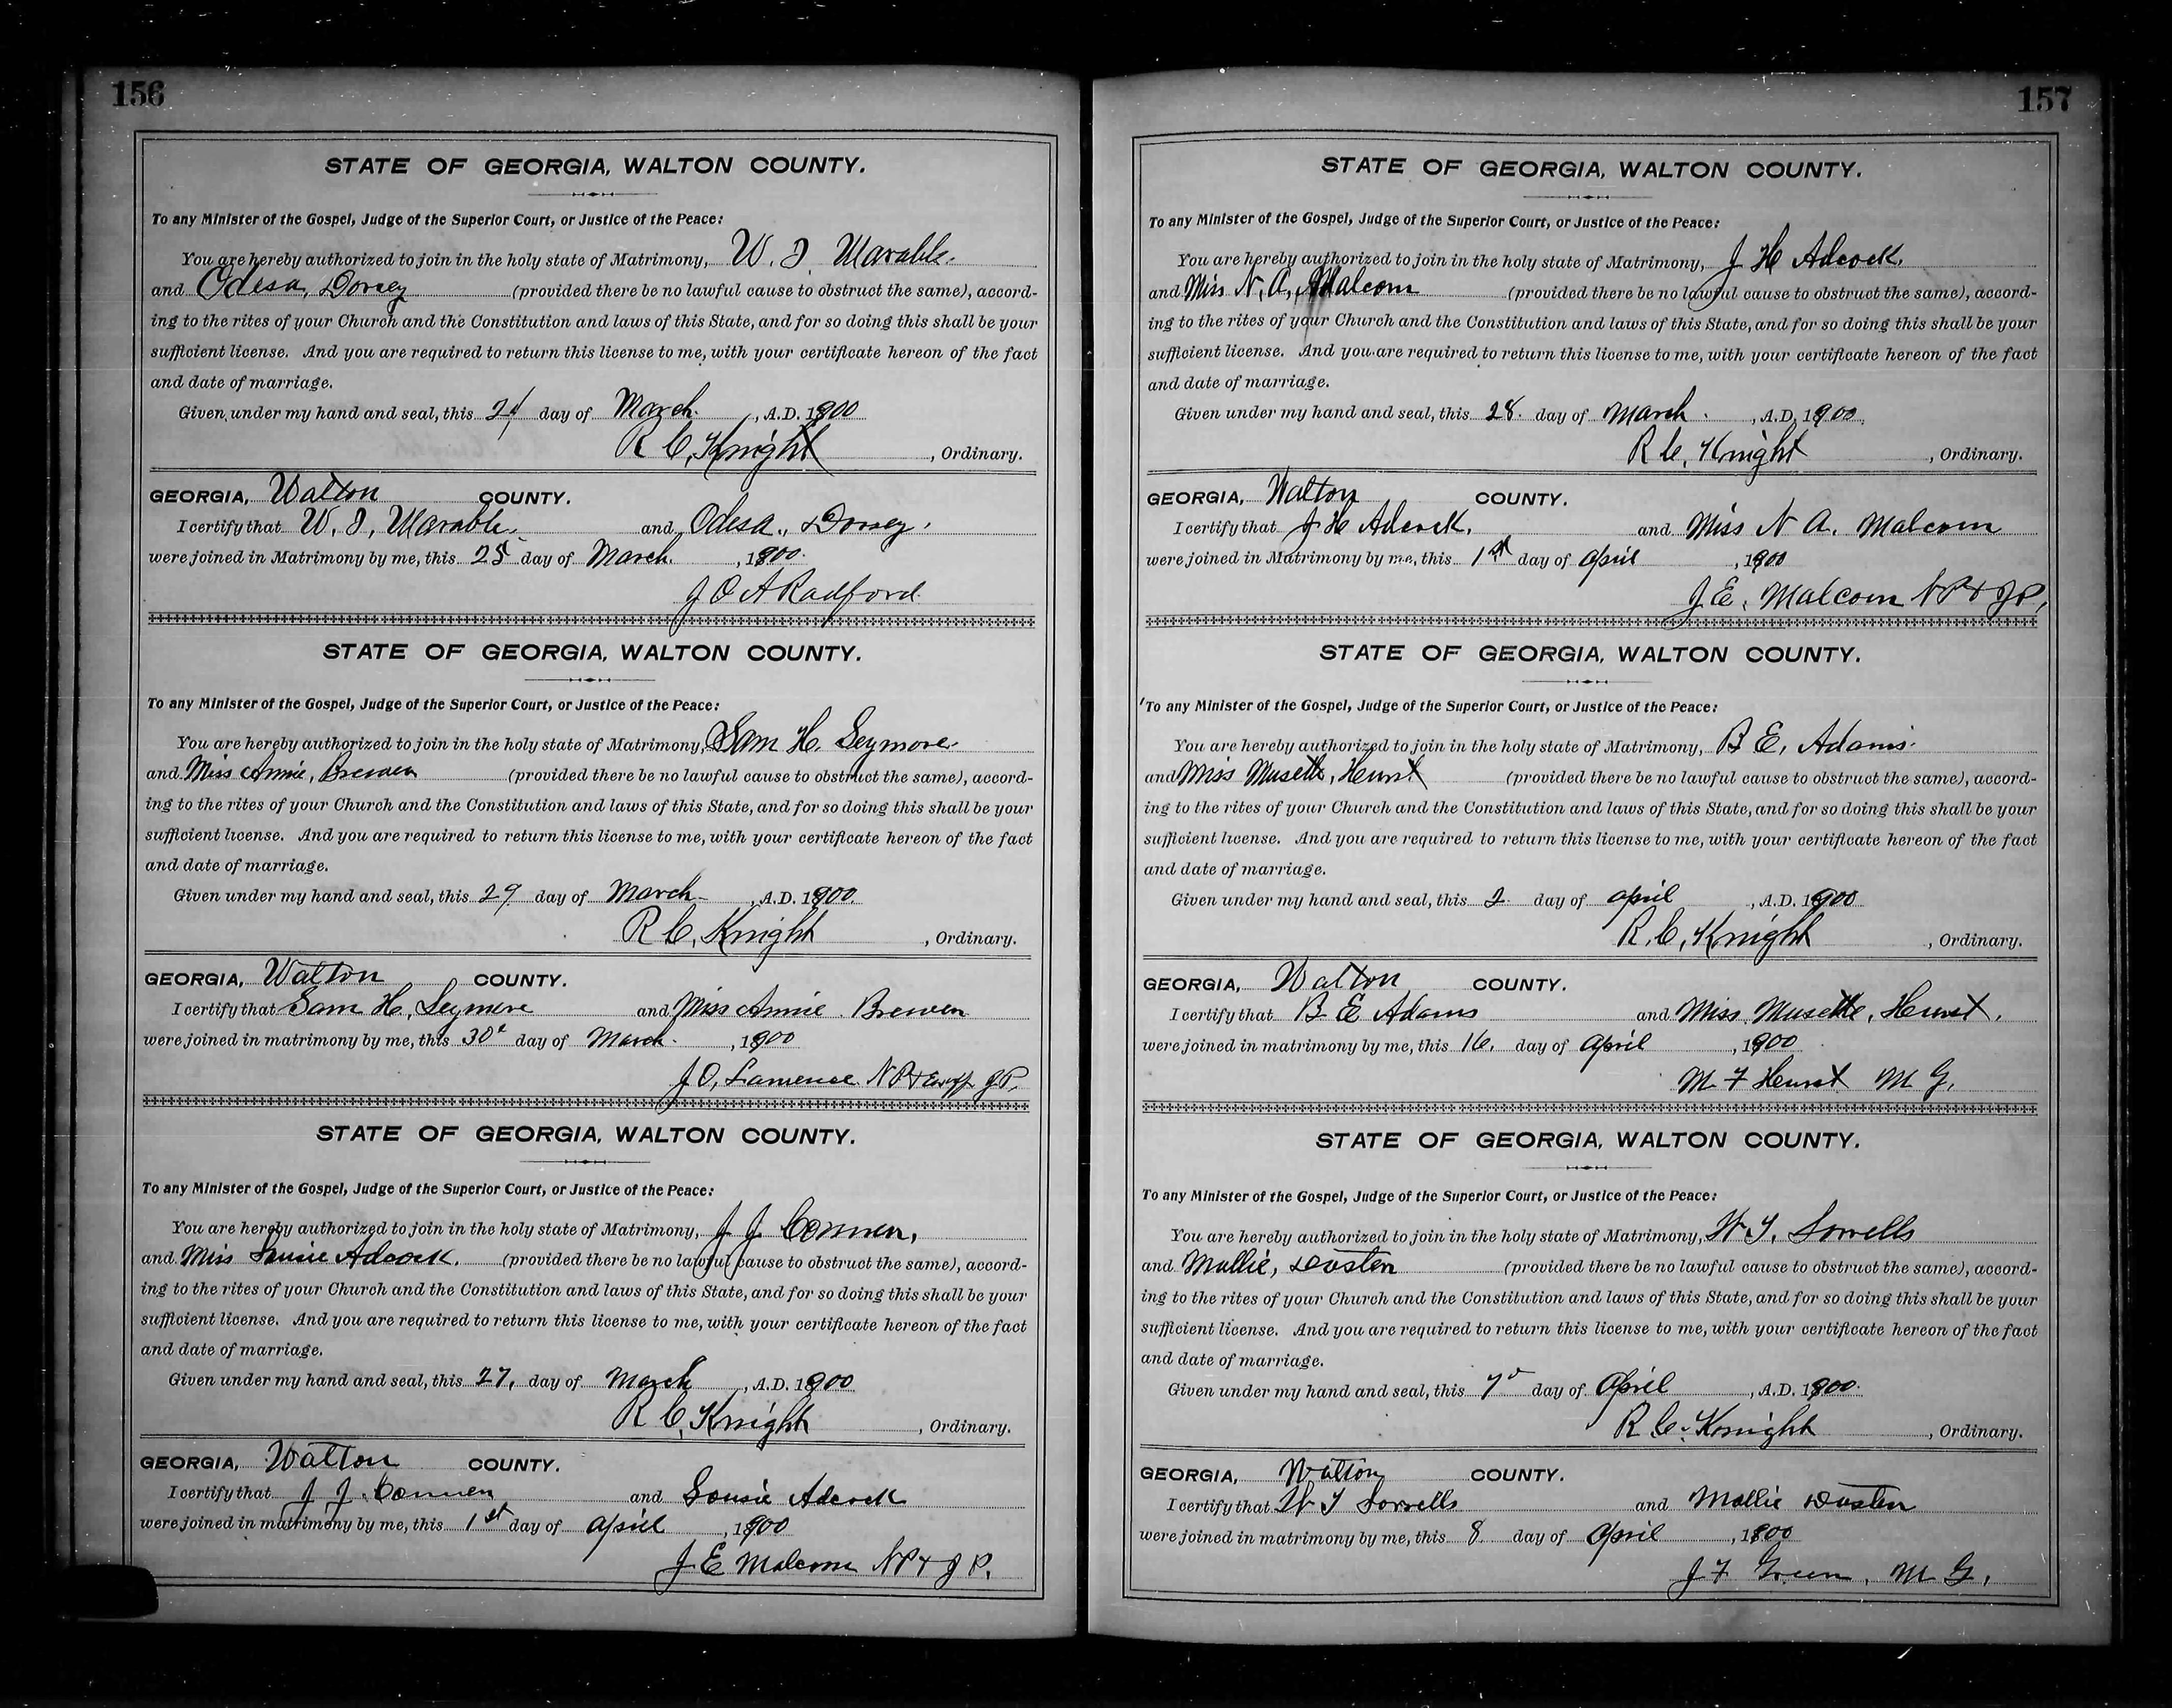 156
STATE OF GEORGIA, WALTON COUNTY.
To any Minister of the Gospel, Judge of the Superior Court, or Justice of the Peace:
You are hereby authorized to join in the holy state of Matrimony, W. J. Marable.
and Odesa, Dorsey (provided there be no lawful cause to obstruct the same), accord-
ing to the rites of your Church and the Constitution and laws of this State, and for so doing this shall be your
sufficient license. And you are required to return this license to me, with your certificate hereon of the fact
and date of marriage.
Given under my hand and seal, this 24 day of March. , A.D. 1900
R C, Knight , Ordinary.
GEORGIA, Walton COUNTY.
I certify that W. J, Marable, and Odesa., Dorsey.
were joined in Matrimony by me, this 25 day of March. , 1900.
J O A Radford
STATE OF GEORGIA, WALTON COUNTY.
To any Minister of the Gospel, Judge of the Superior Court, or Justice of the Peace:
You are hereby authorized to join in the holy state of Matrimony, Sam H. Seymore.
and Miss Annie, Brewer (provided there be no lawful cause to obstruct the same), accord-
ing to the rites of your Church and the Constitution and laws of this State, and for so doing this shall be your
sufficient license. And you are required to return this license to me, with your certificate hereon of the fact
and date of marriage.
Given under my hand and seal, this 29 day of March , A.D. 1900.
R C, Knight , Ordinary.
GEORGIA, Walton COUNTY.
I certify that Sam H, Seymore and Miss Annie Brewer
were joined in matrimony by me, this 30 day of March. , 1900
J O, Lawrence NP & J P.
STATE OF GEORGIA, WALTON COUNTY.
To any Minister of the Gospel, Judge of the Superior Court, or Justice of the Peace:
You are hereby authorized to join in the holy state of Matrimony, J J Conner,
and Miss Adcock. (provided there be no lawful cause to obstruct the same), accord-
ing to the rites of your Church and the Constitution and laws of this State, and for so doing this shall be your
sufficient license. And you are required to return this license to me, with your certificate hereon of the fact
and date of marriage.
Given under my hand and seal, this 27, day of March , A.D. 1900
R C, Knight , Ordinary.
GEORGIA, Walton COUNTY.
I certify that J J. Conner and Adcock
were joined in matrimony by me, this 1st day of April , 1900
J E Malcom NP & J P.
157
STATE OF GEORGIA, WALTON COUNTY.
To any Minister of the Gospel, Judge of the Superior Court, or Justice of the Peace:
You are hereby authorized to join in the holy state of Matrimony, J H Adcock.
and Miss N. A, Malcom (provided there be no lawful cause to obstruct the same), accord-
ing to the rites of your Church and the Constitution and laws of this State, and for so doing this shall be your
sufficient license. And you are required to return this license to me, with your certificate hereon of the fact
and date of marriage.
Given under my hand and seal, this 28. day of March. , A.D. 1900,
R C, Knight , Ordinary.
GEORGIA, Walton COUNTY.
I certify that J H Adcock. and Miss N A. Malcom
were joined in Matrimony by me, this 1st day of April , 1900
J E. Malcom NP & J P,
STATE OF GEORGIA, WALTON COUNTY.
To any Minister of the Gospel, Judge of the Superior Court, or Justice of the Peace:
You are hereby authorized to join in the holy state of Matrimony, B E, Adams.
and Miss Musette, Hurst (provided there be no lawful cause to obstruct the same), accord-
ing to the rites of your Church and the Constitution and laws of this State, and for so doing this shall be your
sufficient license. And you are required to return this license to me, with your certificate hereon of the fact
and date of marriage.
Given under my hand and seal, this 2. day of April , A.D. 1900
R. C, Knight , Ordinary.
GEORGIA, Walton COUNTY.
I certify that B E Adams and Miss. Musette, Hurst.
were joined in matrimony by me, this 16. day of April , 1900
M. F Hurst M G.
STATE OF GEORGIA, WALTON COUNTY.
To any Minister of the Gospel, Judge of the Superior Court, or Justice of the Peace:
You are hereby authorized to join in the holy state of Matrimony, W. T. Sorrells
and Mollie, Dosten (provided there be no lawful cause to obstruct the same), accord-
ing to the rites of your Church and the Constitution and laws of this State, and for so doing this shall be your
sufficient license. And you are required to return this license to me, with your certificate hereon of the fact
and date of marriage.
Given under my hand and seal, this 7 day of April , A.D. 1900.
R C. Knight , Ordinary.
GEORGIA, Walton COUNTY.
I certify that W T Sorrells and Mollie Dosten
were joined in matrimony by me, this 8 day of April , 1900
J F Green, M G,